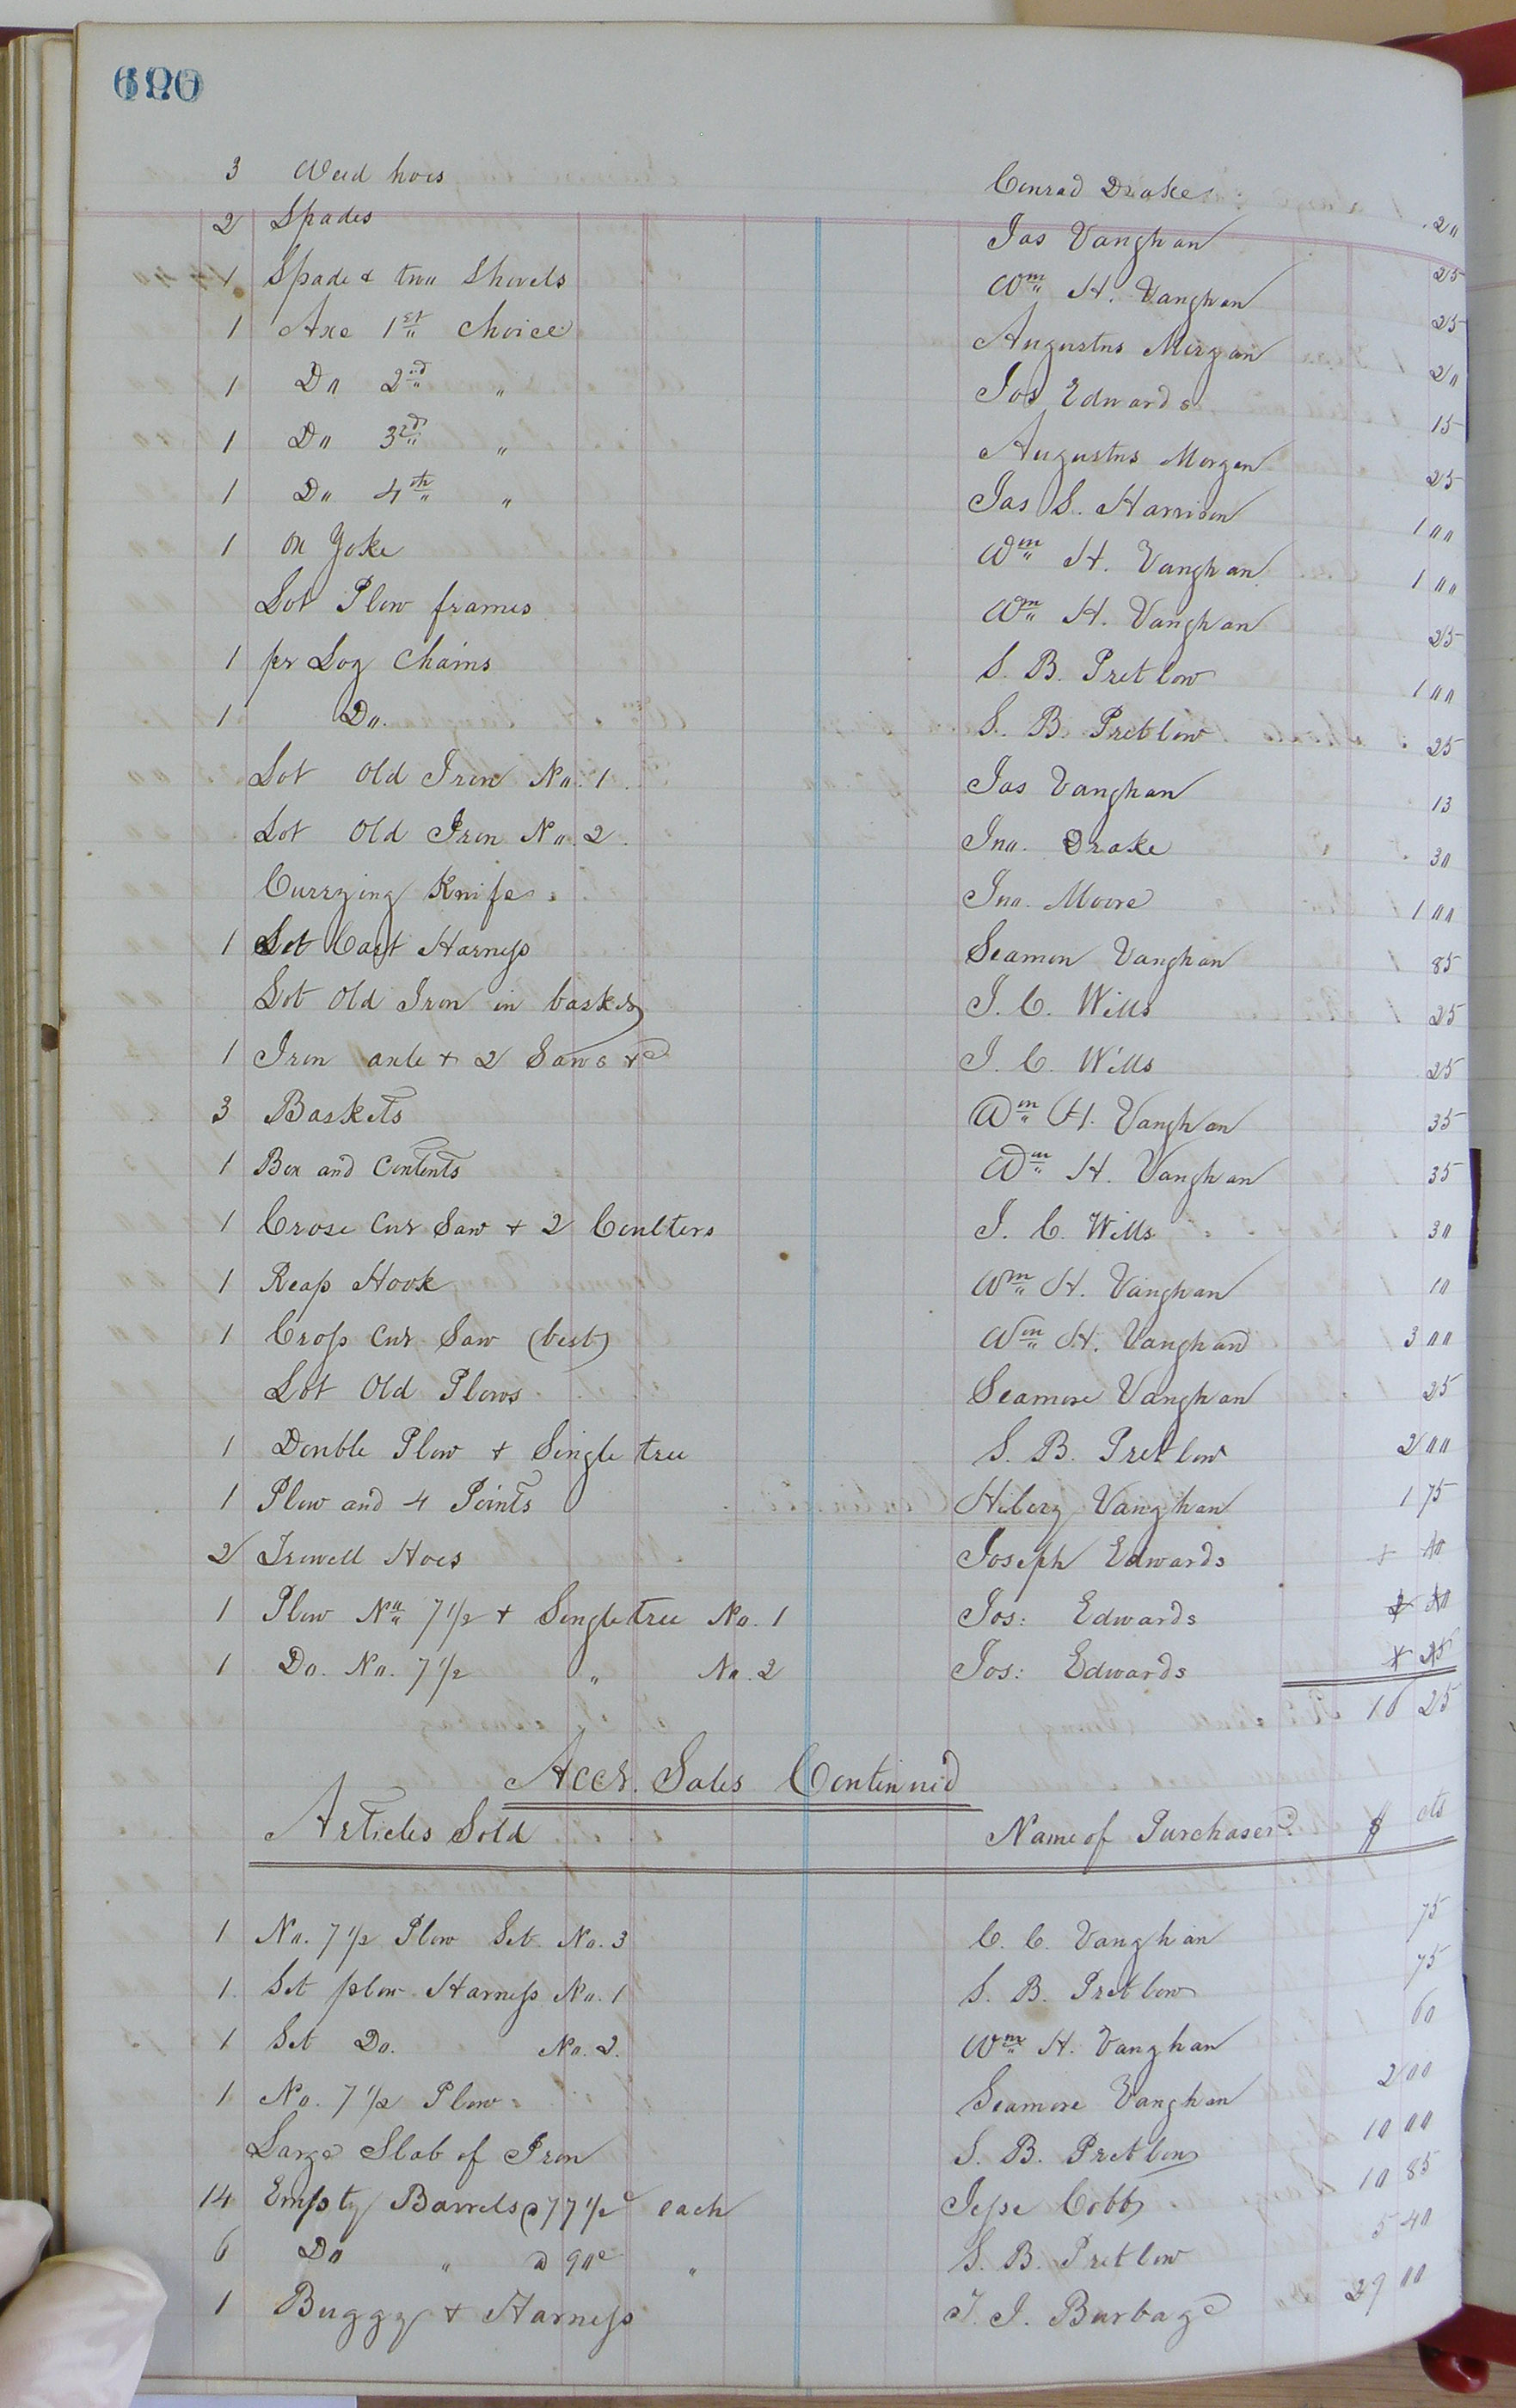 3 Weed hoes Conrad Drake 20
2 Spades Jas Vaughan 25
1 Spade & two Shovels Wm H. Vaughan 25
1 Axe 1st Choice Augustus Morgan 20
1 Do 2nd " Jos Edwards 15
1 Do 3rd " Augustus Morgan 25
1 Do 4th " Jas S. Harrison 1 00
1 Ox Yoke Wm H. Vaughan 1 00
Lot Plow frames Wm H. Vaughan 25
1 pr Log Chains S. B. Pretlow 1 00
1 Do. S. B. Pretlow 25
Lot Old Iron No. 1. Jas Vaughan 13
Lot Old Iron No. 2. Jno. Drake 30
Currying Knife Jno. Moore 1 00
1 Set Cart Harness Seamore Vaughan 85
Lot Old Iron in basket J. C. Wills 25
1 Iron axle & 2 Saws &c J. C. Wills 25
3 Baskets Wm H. Vaughan 35
1 Box and Contents Wm H. Vaughan 35
1 Cross Cut Saw & 2 Coulters J. C. Wills 30
1 Reap Hook Wm H. Vaughan 10
1 Cross Cut Saw (best) Wm H. Vaughan 3 00
Lot Old Plows Seamore Vaughan 25
1 Double Plow & Single tree S. B. Pretlow 2 00
1 Plow and 4 Points Hilery Vaughan 1 75
2 Trowell Hoes Joseph Edwards
1 Plow No 7 1/2 & Singletree No. 1 Jos: Edwards
1 Do. No. 7 1/2 " No. 2 Jos: Edwards
16 25
Acct. Sales Continued
Articles Sold Name of Purchaser $ cts
1 No. 7 1/2 Plow Set No. 3 C. C. Vaughan 75
1 Set plow Harness No. 1 S. B. Pretlow 75
1 Set Do. No. 2. Wm H. Vaughan 60
1 No. 7 1/2 Plow Seamore Vaughan 2 00
Large Slab of Iron S. B. Pretlow 10 00
14 Empty Barrels @ 77 1/2 c each Jesse Cobb 10 85
6 Do " @ 90c " S. B. Pretlow 5 40
1 Buggy & Harness T. J. Burbage 29 00